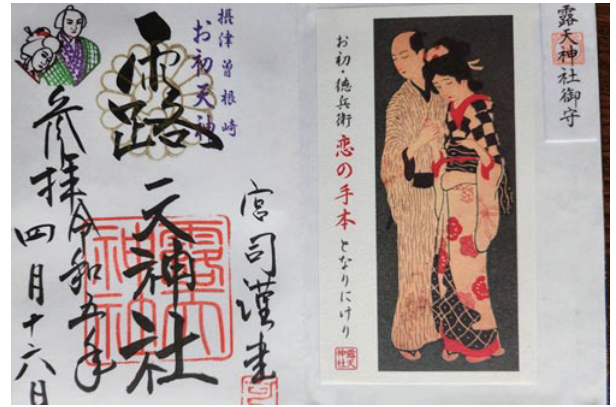 摂津曽根崎
お初天神
露天神社
参拝令和五年
四月十六日
宮司謹書
露天神社
お初・徳兵衛
恋の手本
となりにけり
露天神社
露天神社御守